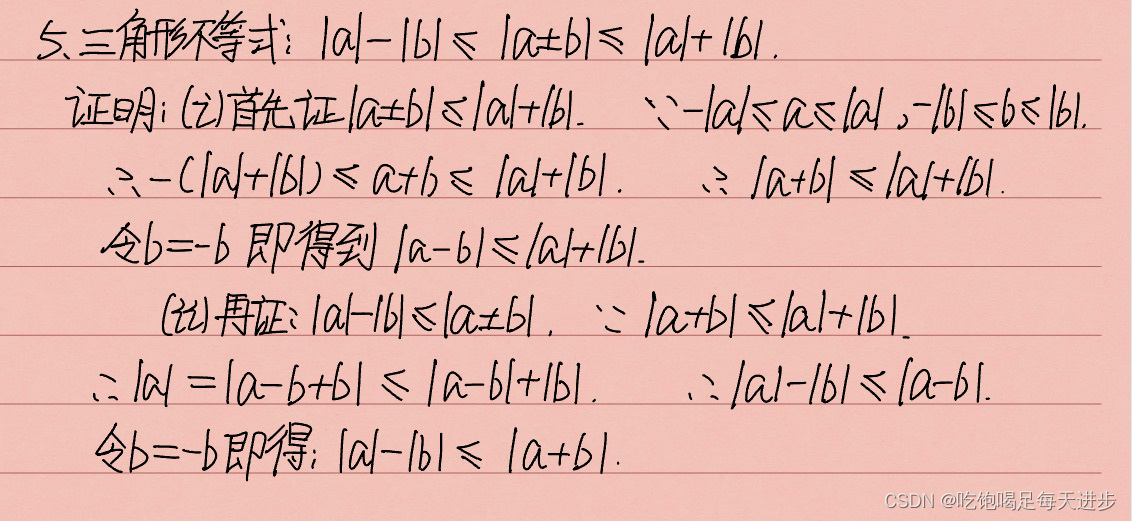 5、三角形不等式：|a|-|b|≤|a±b|≤|a|+|b|.
证明：(i)首先证|a±b|≤|a|+|b|. ∵-|a|≤a≤|a|，-|b|≤b≤|b|.
∴-(|a|+|b|)≤a+b≤|a|+|b|. ∴|a+b|≤|a|+|b|.
令b=-b 即得到|a-b|≤|a|+|b|.
(ii)再证：|a|-|b|≤|a±b|. ∵|a+b|≤|a|+|b|.
∴|a|=|a-b+b|≤|a-b|+|b|. ∴|a|-|b|≤|a-b|.
令b=-b即得：|a|-|b|≤|a+b|.
CSDN @吃饱喝足每天进步